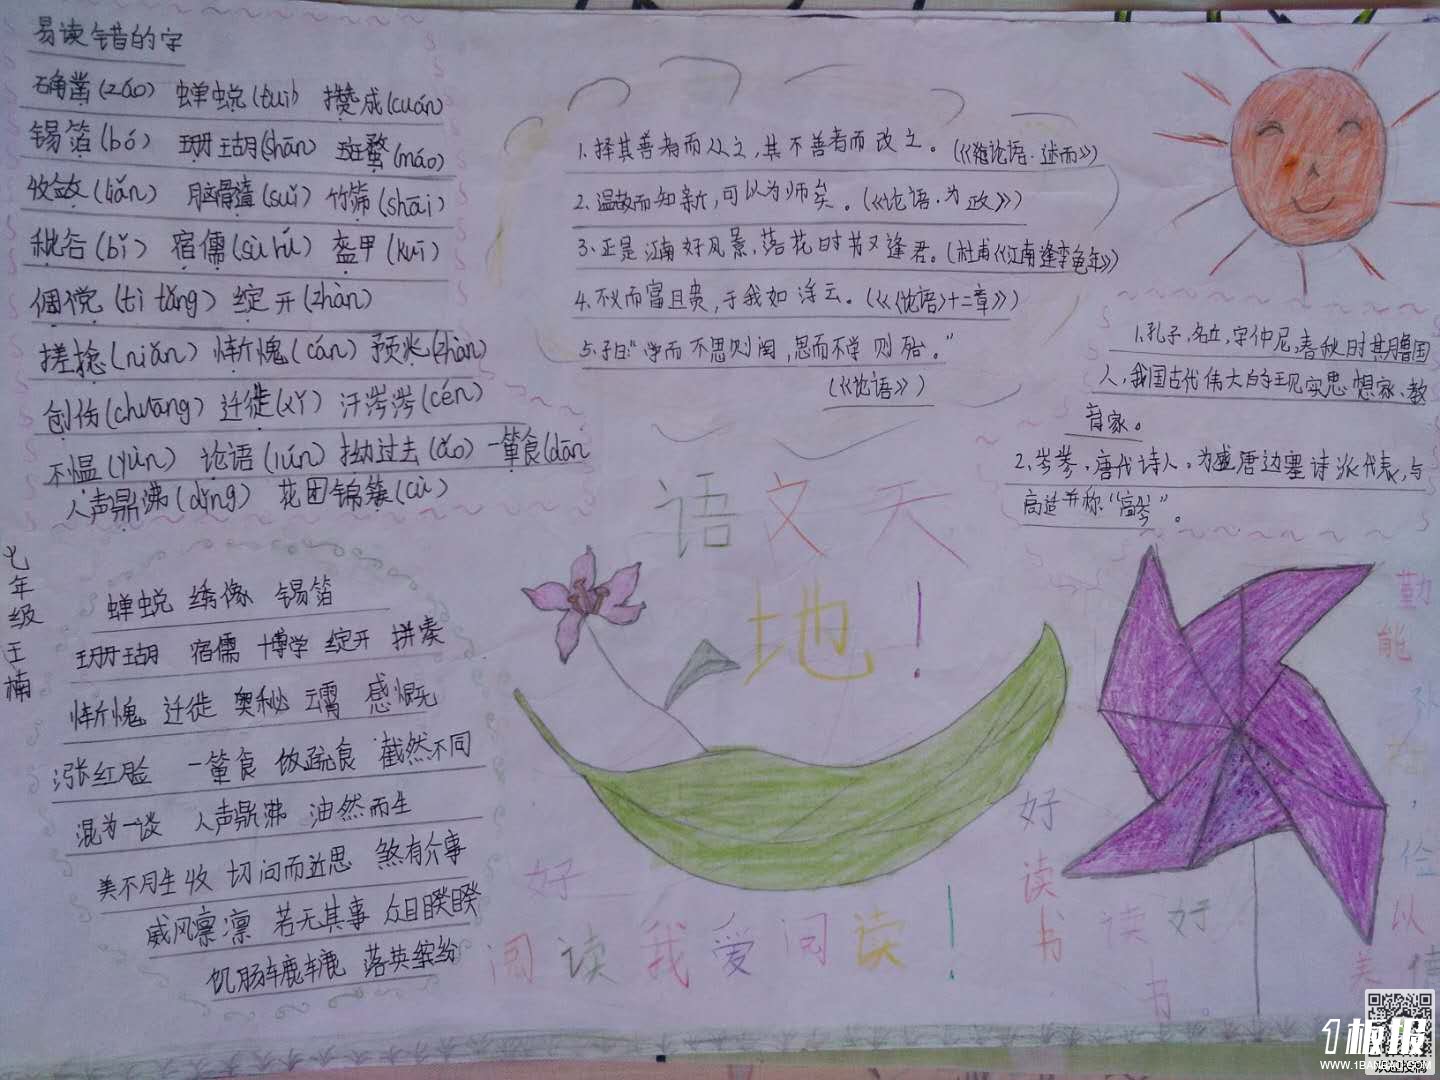 易读错的字
确凿(záo) 蝉蜕(tuì) 攒成(cuán)
锡箔(bó) 珊瑚(shān) 斑蝥(máo)
收敛(liǎn) 脑髓(suǐ) 竹筛(shāi)
秕谷(bǐ) 宿儒(sù rú) 盔甲(kuī)
倜傥(tì tǎng) 绽开(zhàn)
搓捻(niǎn) 惭愧(cán) 预兆(zhàn)
创伤(chuāng) 迁徙(xǐ) 汗涔涔(cén)
不愠(yùn) 论语(lún) 拗过去(ǎo) 一箪食(dān
人声鼎沸(dǐng) 花团锦簇(cù)
七年级王楠
蝉蜕 绣像 锡箔
珊瑚 宿儒 博学 绽开 拼凑
惭愧 迁徙 奥秘 云霄 感慨
涨红脸 一箪食 饭疏食 截然不同
混为一谈 人声鼎沸 油然而生
美不胜收 切问而近思 煞有介事
威风凛凛 若无其事 众目睽睽
饥肠辘辘 落英缤纷
1.择其善者而从之,其不善者而改之。(《论语·述而》)
2.温故而知新,可以为师矣。(《论语·为政》)
3.正是江南好风景,落花时节又逢君。(杜甫《江南逢李龟年》)
4.不义而富且贵,于我如浮云。(《〈论语〉十二章》)
5.子曰:“学而不思则罔,思而不学则殆。”
(《论语》)
语文天
地!
1.孔子,名丘,字仲尼,春秋时期鲁国
人,我国古代伟大的现实思想家、教
育家。
2.岑参,唐代诗人。为盛唐边塞诗派代表,与
高适并称“高岑”。
好
阅读我爱阅读!
好读书
读好
书。
勤能补拙,俭以
美德
1板报
WWW.1BANBAO.COM
欢迎投稿